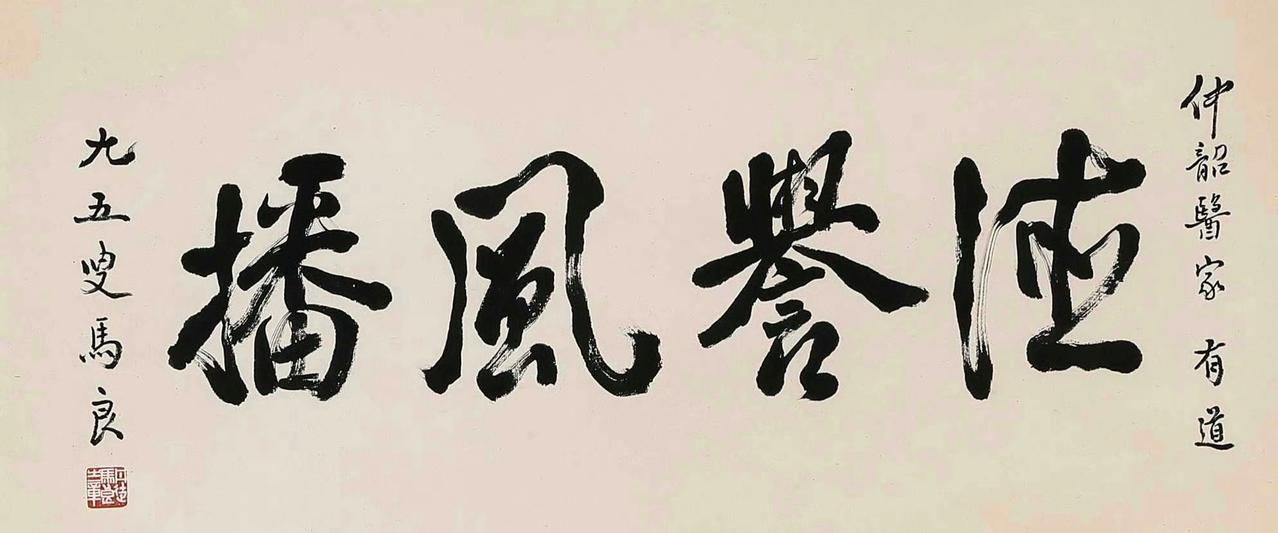 仲韶醫家 有道
德譽風播
九五叟馬良